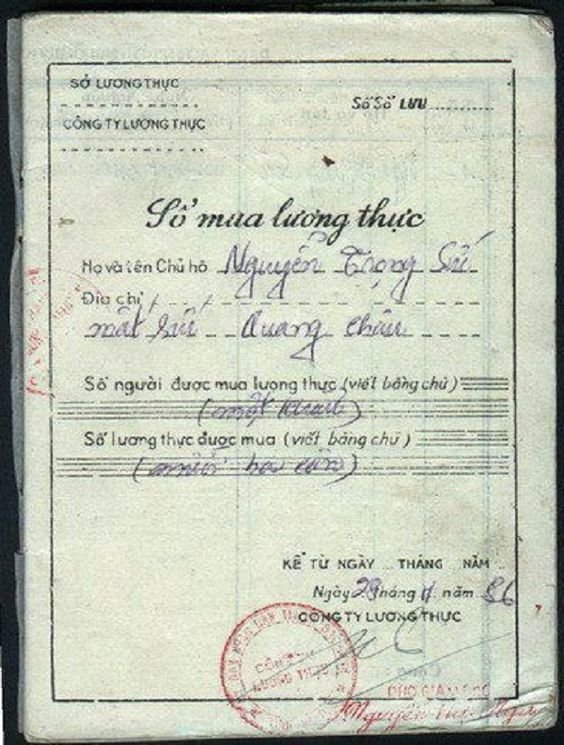 SỞ LƯƠNG THỰC
Số Sổ LƯU
CÔNG TY LƯƠNG THỰC
Sổ mua lương thực
Họ và tên Chủ hộ Nguyễn Trọng Sứ
Địa chỉ
mắt sứ Quang Châu
Số người được mua lương thực (viết bằng chữ)
(một khẩu)
Số lương thực được mua (viết bằng chữ)
(mười ba cân)
KỂ TỪ NGÀY ... THÁNG ... NĂM ...
Ngày 28 tháng 11 năm 86
CÔNG TY LƯƠNG THỰC
CÔNG TY
LƯƠNG THỰC
PHÓ GIÁM ĐỐC
Nguyễn